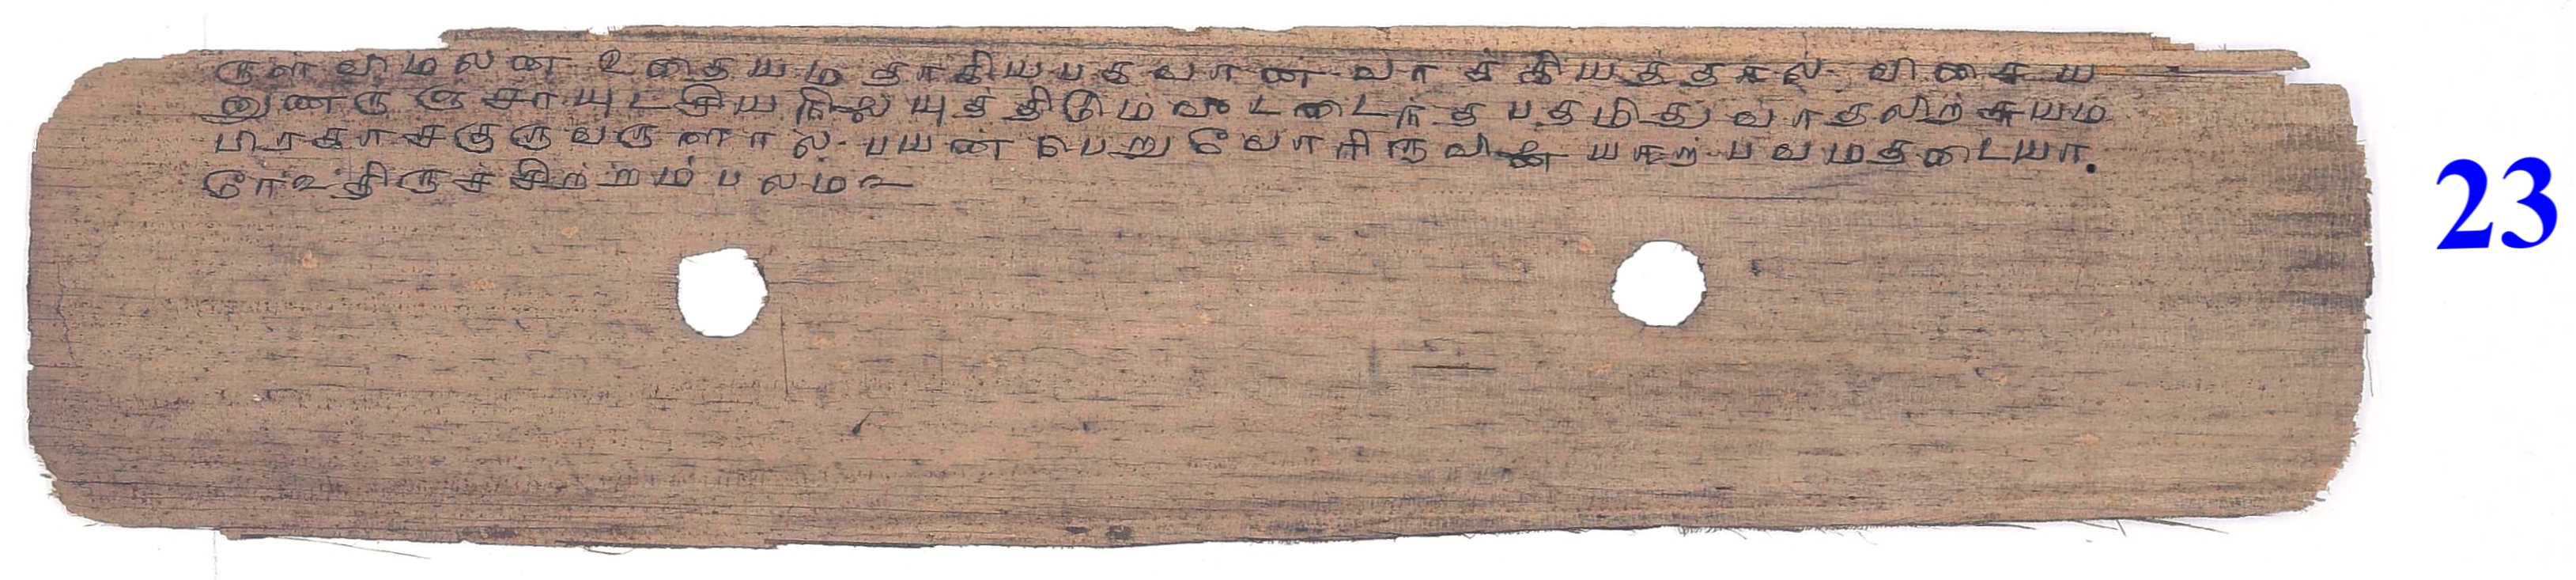 ருள விமலன உதையமதாகிய பகவான வாக்கியத்தால விசைய
னுணருஞ சாயுட்சிய நிலையுத்திடும வட்டடைந்த பதமிது வாதலிற் சுயம
பிரகாசகுருவருளால பயன பெறுவோரிருவினை யகற் பவமதடையா.
ரே௨ திருச்சிற்றம்பலம௨
23